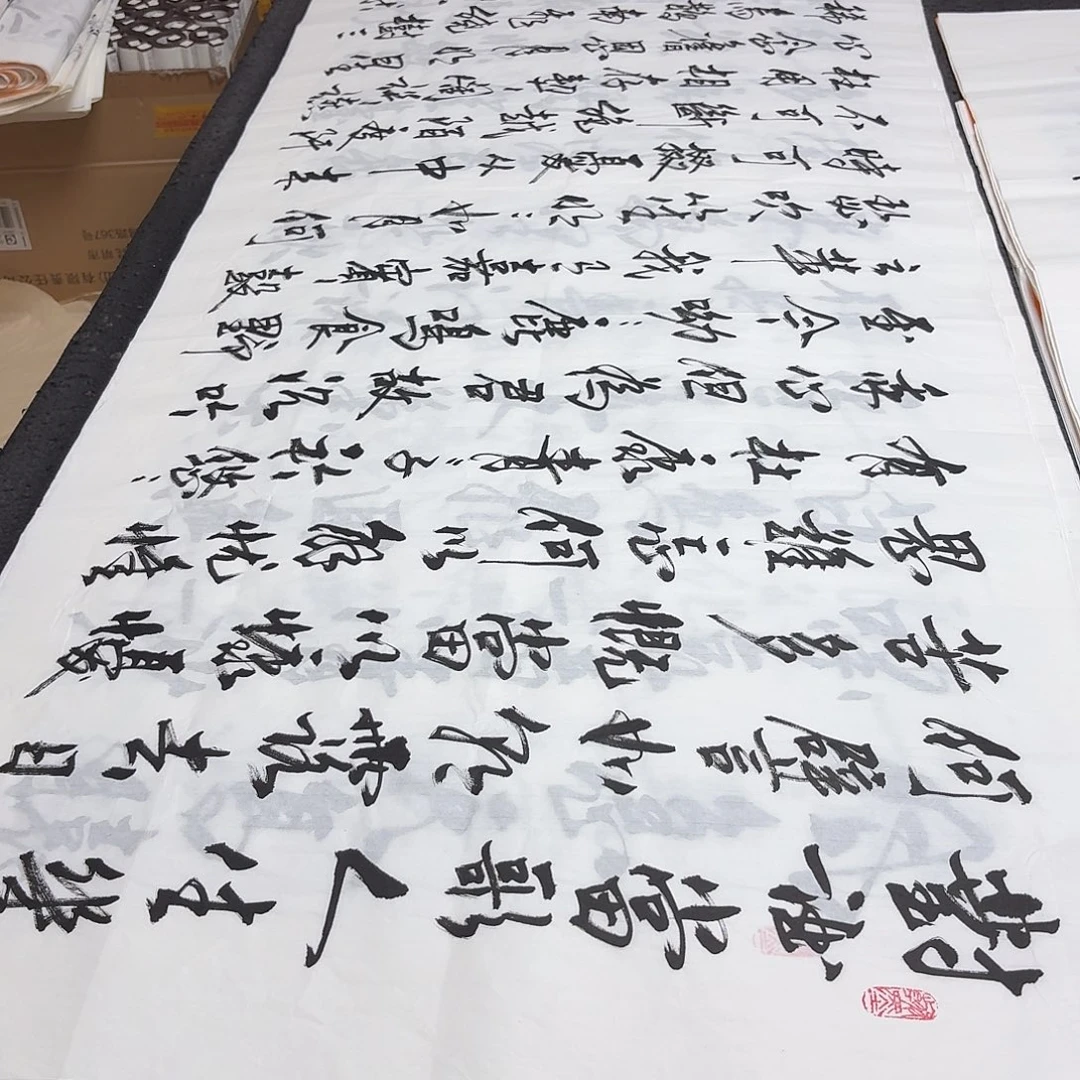 對酒當歌人生幾
何譬如朝露去日
苦多慨當以慷慨
思難忘何以解忧惟
有杜康青々子衿悠々
我心但為君故沉吟
至今呦々鹿鳴食野
之苹我有嘉賓鼓
瑟吹笙明々如月何
時可掇憂從中來
不可斷絕越陌度阡
枉用相存契闊談讌
心念舊恩月明星
稀烏鵲南飛繞樹三